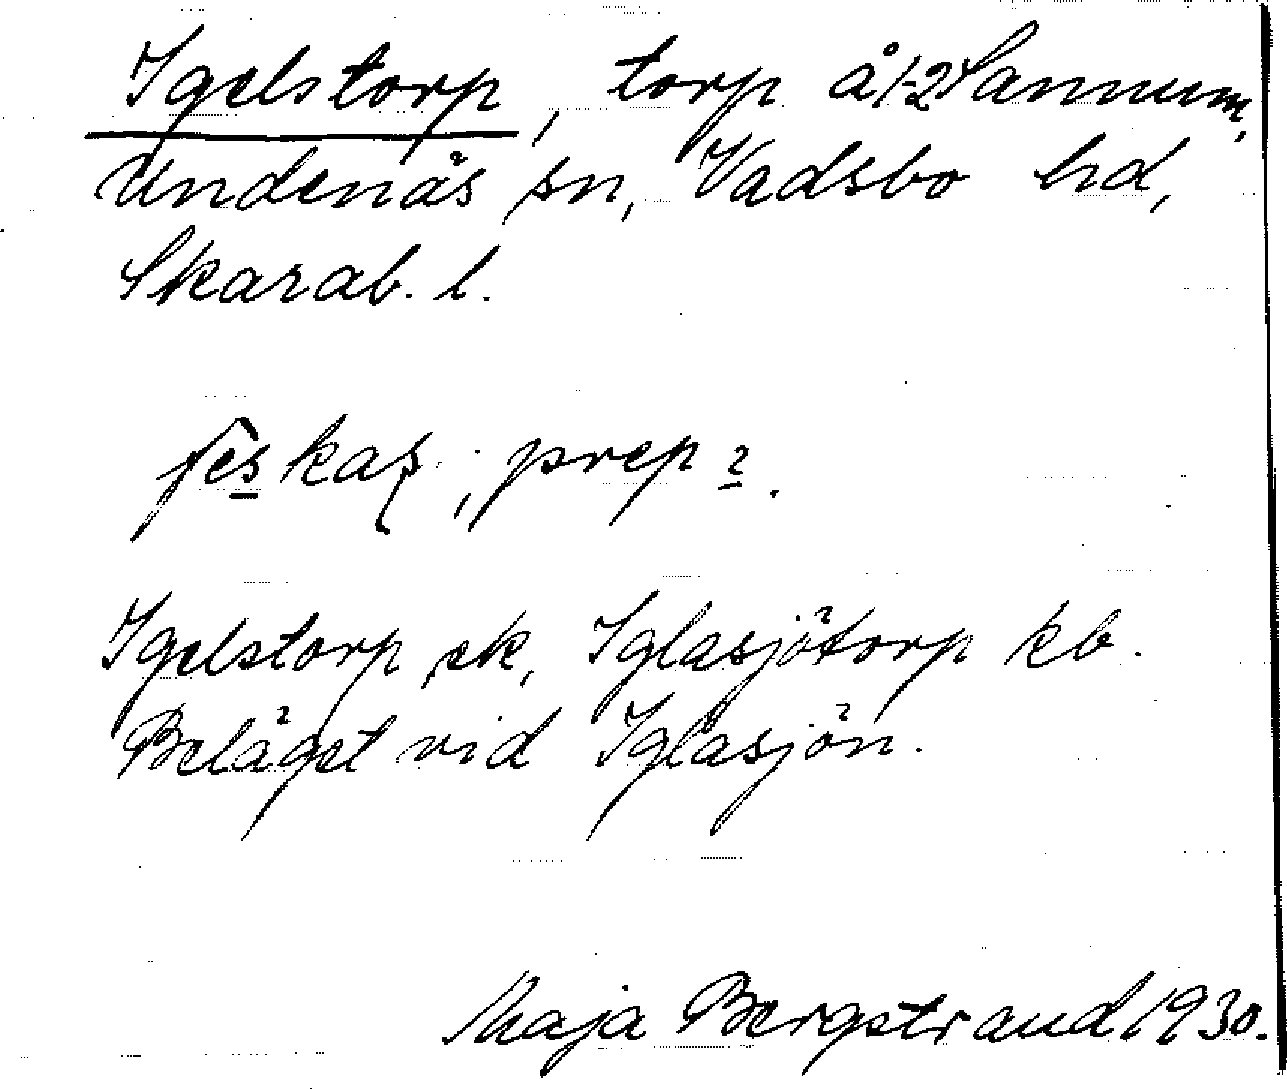 Igelstorp, torp å 1-2 Sannum,
Undenäs sn, Vadsbo hd,
Skarab. l.
fès kaş, prep 2.
Igelstorp ek, Iglasjötorp kb.
Beläget vid Iglasjön.
Maja Bergstrand 1930.